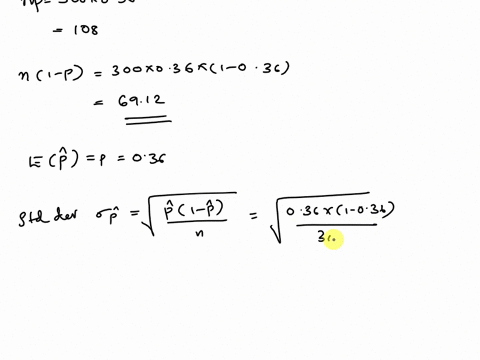 np = 300×0.36
= 108
n(1-p) = 300×0.36×(1-0.36)
= 69.12
E(p̂) = p = 0.36
Std dev σp̂ = √(p̂(1-p̂)/n) = √(0.36×(1-0.36)/30